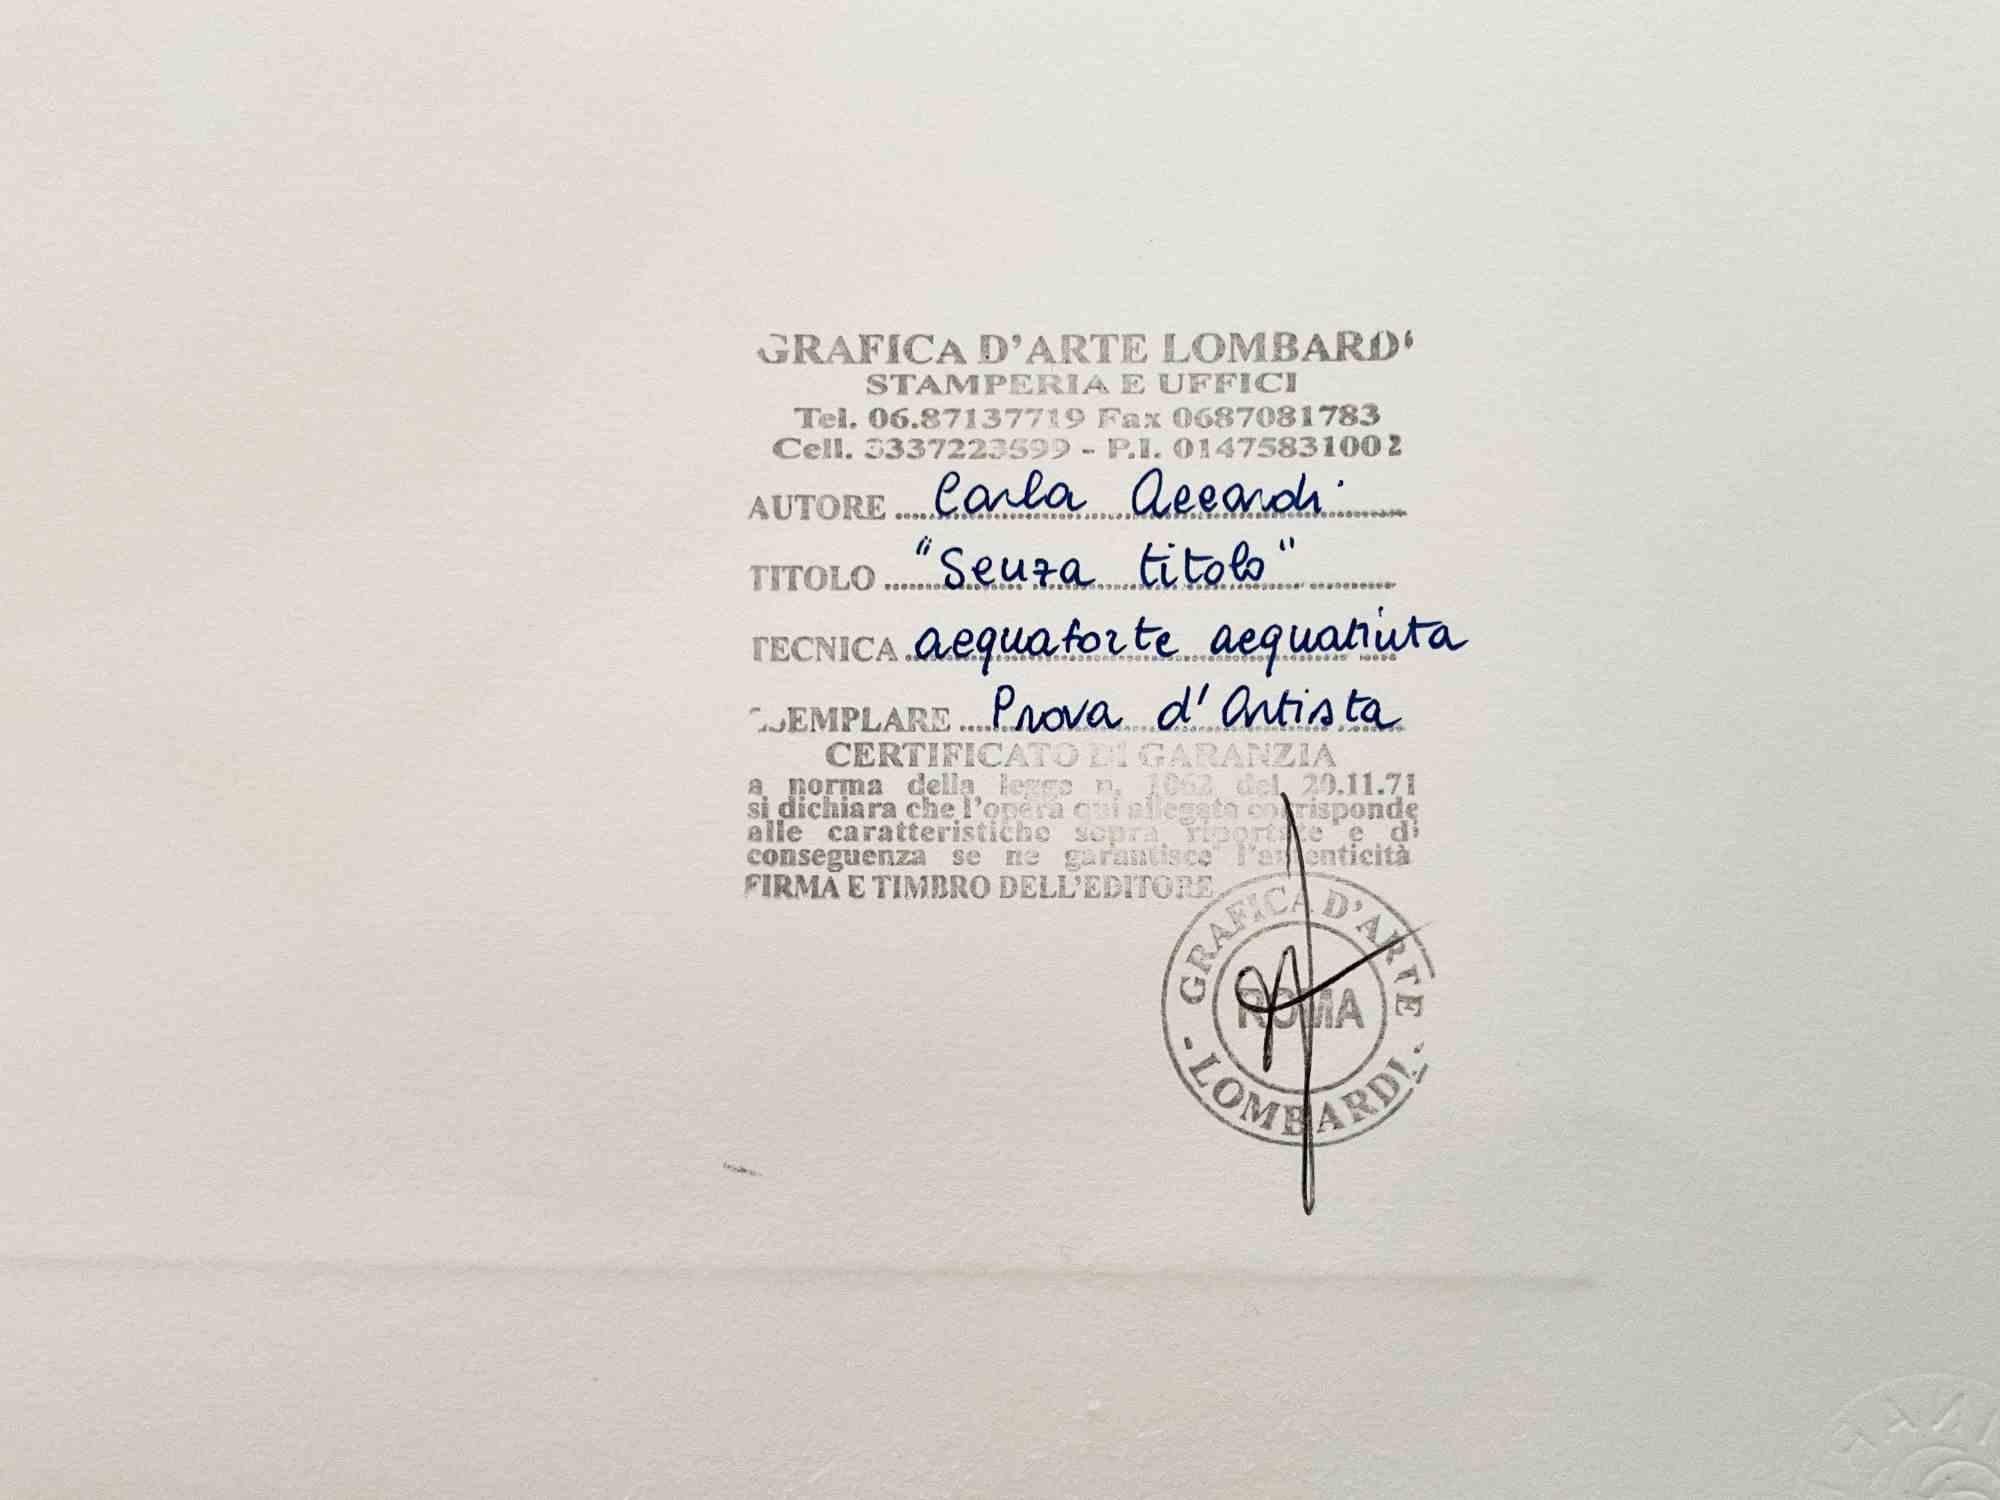 GRAFICA D'ARTE LOMBARDI
STAMPERIA E UFFICI
Tel. 06.87137719 Fax 0687081783
Cell. 3337223599 - P.I. 01475831002
AUTORE Carla Accardi
TITOLO "Senza titolo"
TECNICA acquaforte acquatinta
ESEMPLARE Prova d'Artista
CERTIFICATO DI GARANZIA
a norma della legge n. 1062 del 20.11.71
si dichiara che l'opera qui allegata corrisponde
alle caratteristiche sopra riportate e di
conseguenza se ne garantisce l'autenticità
FIRMA E TIMBRO DELL'EDITORE
GRAFICA D'ARTE
ROMA
- LOMBARDI -